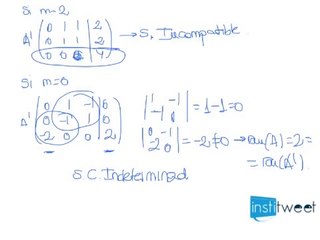 Si m=2
A' ( 0 1 1 | 2
0 1 1 | 2
0 0 0 | 4 ) → S. Incompatible
Si m=0
A' ( 0 1 -1 | 0
0 -1 1 | 0
-2 0 0 | 2 )
| 1 -1
-1 1 | = 1-1=0
| 0 -1
-2 0 | = -2≠0 → ran(A)=2=
= ran(A')
S.C. Indeterminad
institweet